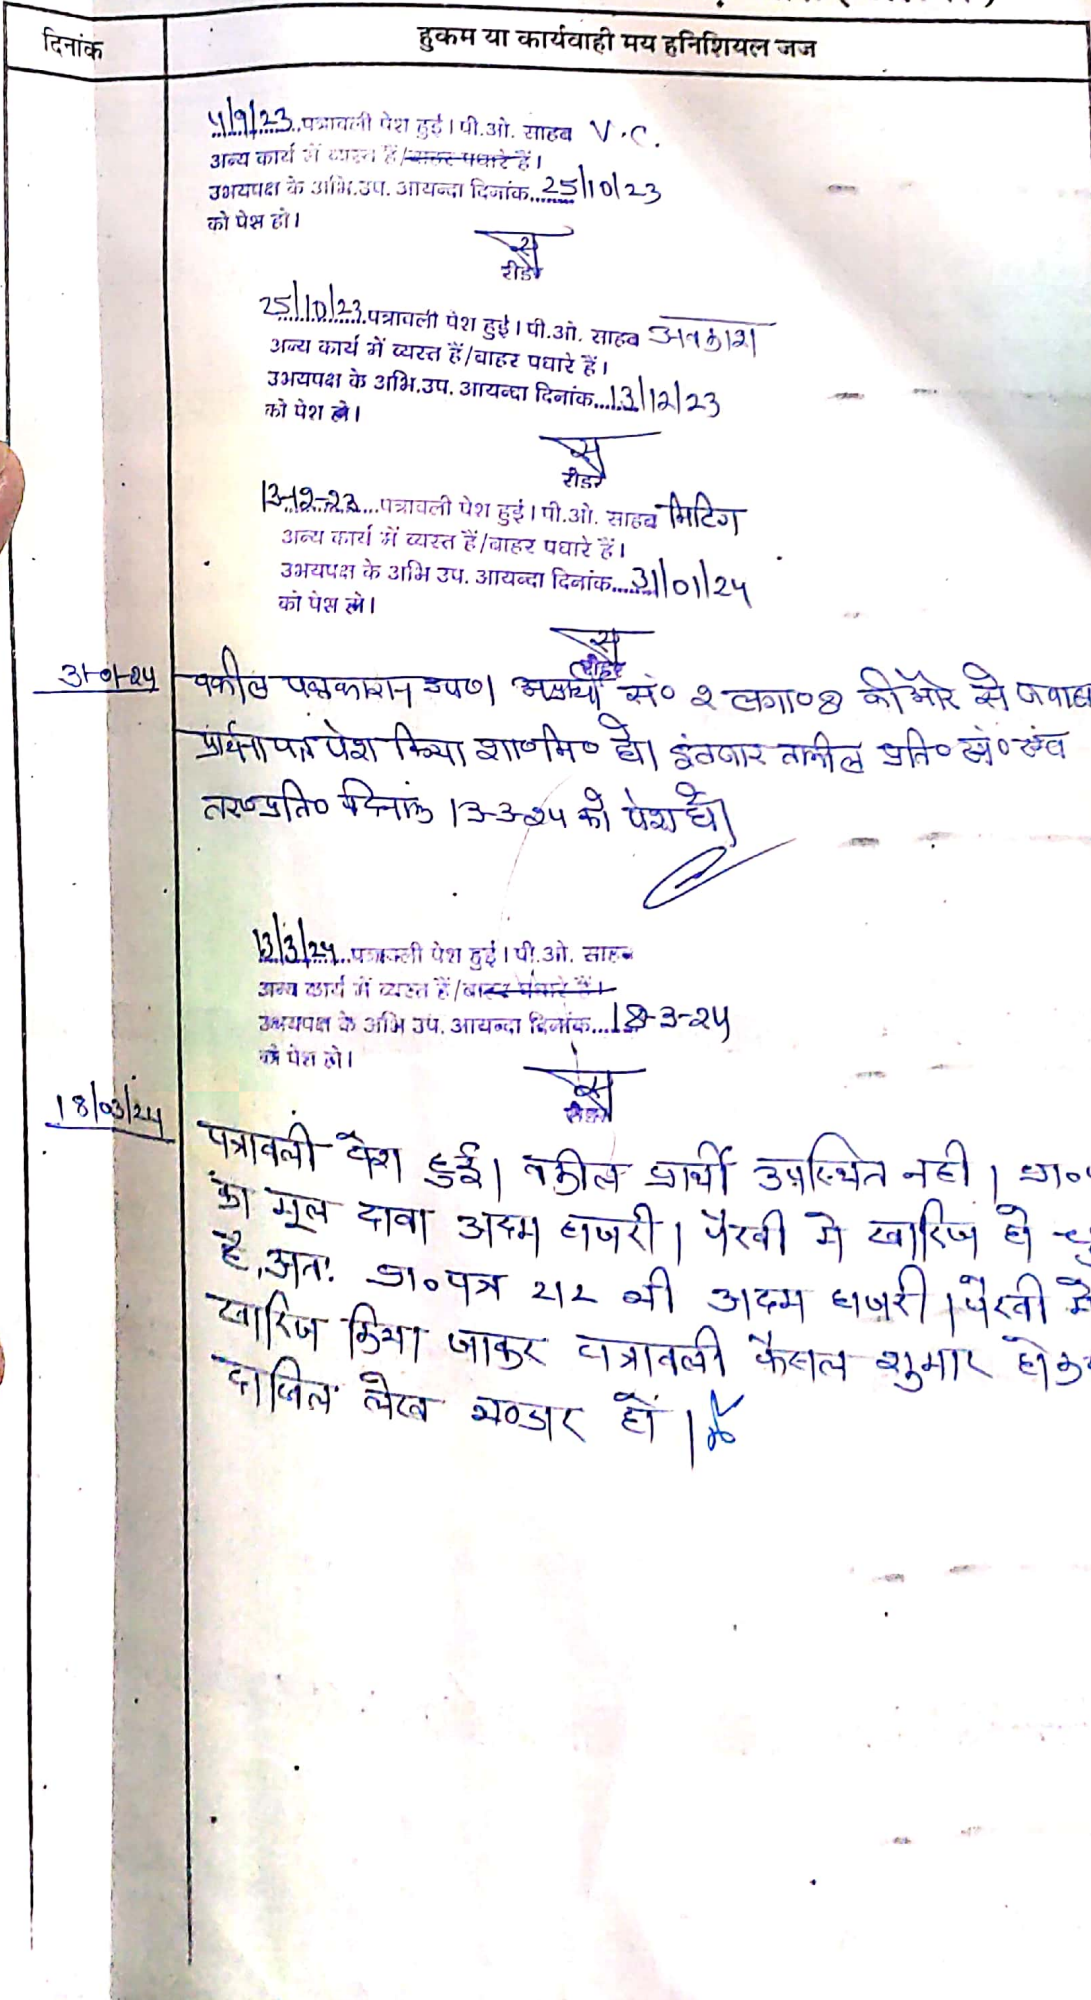 दिनांक
हुकम या कार्यवाही मय हनिशियल जज
4/9/23..पत्रावली पेश हुई। पी.ओ. साहब V.C.
अन्य कार्य में व्यस्त हैं/बाहर पधारे हैं।
उभयपक्ष के अभि.उप. आयन्दा दिनांक....25/10/23
को पेश हो।
रीडर
25/10/23.पत्रावली पेश हुई। पी.ओ. साहब अवकाश
अन्य कार्य में व्यस्त हैं/बाहर पधारे हैं।
उभयपक्ष के अभि.उप. आयन्दा दिनांक...13/12/23
को पेश हो।
रीडर
13-12-23...पत्रावली पेश हुई। पी.ओ. साहब मिटिग
अन्य कार्य में व्यस्त हैं/बाहर पधारे हैं।
उभयपक्ष के अभि उप. आयन्दा दिनांक....31/01/24
को पेश हो।
रीडर
31-01-24
वकील पक्षकारान उप०। सं० 2 लगा० 8 की ओर से जवाब
प्रार्थना पत्र पेश किया शा०मि० हो। इंतजार तामील प्रति० सं०
दिनांक 13-3-24 को पेश हो।
13/3/24..पत्रावली पेश हुई। पी.ओ. साहब
अन्य कार्य में व्यस्त हैं/बाहर पधारे हैं।
उभयपक्ष के अभि उप. आयन्दा दिनांक...18-3-24
को पेश हो।
रीडर
18/03/24
पत्रावली पेश हुई। वकील प्रार्थी उपस्थित नही। प्रा०
का मूल दावा अदम हाजरी। पैरवी मे खारिज हो
है, अतः प्रा० पत्र 212 भी अदम हाजरी। पैरवी मे
खारिज किया जाकर पत्रावली फैसल शुमार होकर
दाखिल लेख भण्डार हों।